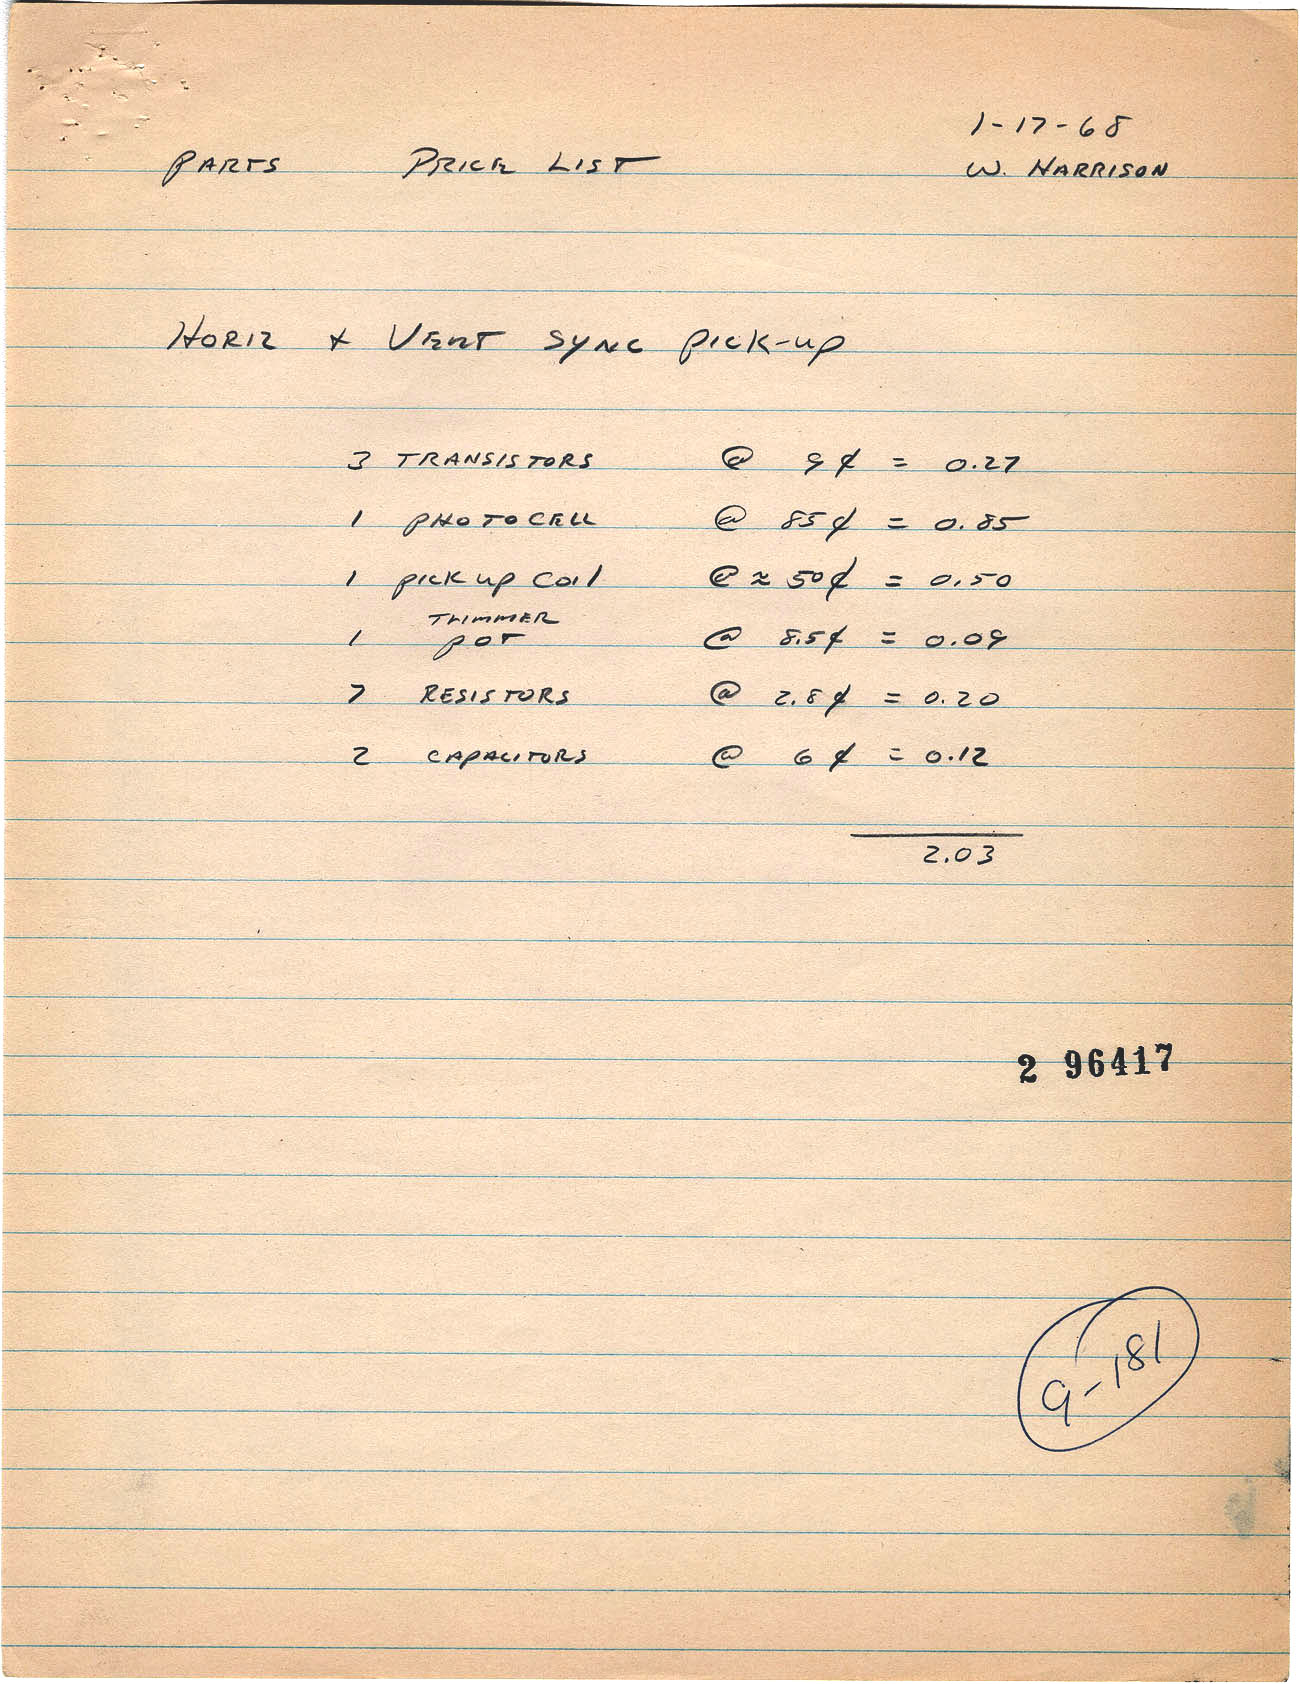 1-17-68
PARTS PRICE LIST W. HARRISON
HORIZ & VERT SYNC pick-up
3 TRANSISTORS @ 9¢ = 0.27
1 PHOTOCELL @ 85¢ = 0.85
1 pick up coil @ ≈ 50¢ = 0.50
TRIMMER
1 POT @ 8.5¢ = 0.09
7 RESISTORS @ 2.8¢ = 0.20
2 CAPACITORS @ 6¢ = 0.12
2.03
2 96417
9-181